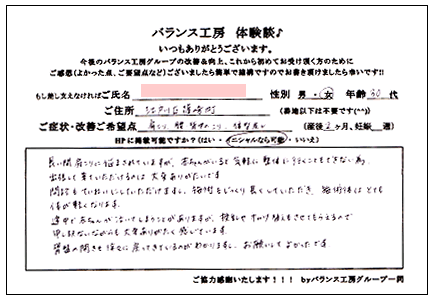 バランス工房 体験談♪
いつもありがとうございます。
今後のバランス工房グループの改善&向上、これから初めてお受け頂く方のために
ご感想(よかった点、ご要望点など)ございましたら簡単で結構ですのでお書き頂けましたら幸いです!!
もし差し支えなければご氏名 性別 男・女 年齢 30 代
ご住所 江戸川区篠崎町 (番地以下は不要です(^^))
ご症状・改善ご希望点 肩こり、腰、背中のこり、 (産後 2ヶ月、妊娠 週)
HPに掲載可能ですか?(はい・イニシャルなら可能・いいえ)
長い間肩こりに悩まされていますが、赤ちゃんがいると気軽に整体に行くこともできない為、
出張して来ていただけるのは大変ありがたいです。
問診もていねいにしていただけますし、施術もじっくり長くしていただき、施術後はとても
体が軽くなります。
途中で赤ちゃんが泣いてしまうことがありますが、授乳やオムツ替えもさせてもらえるので
申し訳ないながらも大変ありがたく感じています。
骨盤の開きも徐々に戻ってきているのがわかりますし、お願いしてよかったです。
ご協力感謝いたします!!! byバランス工房グループ一同